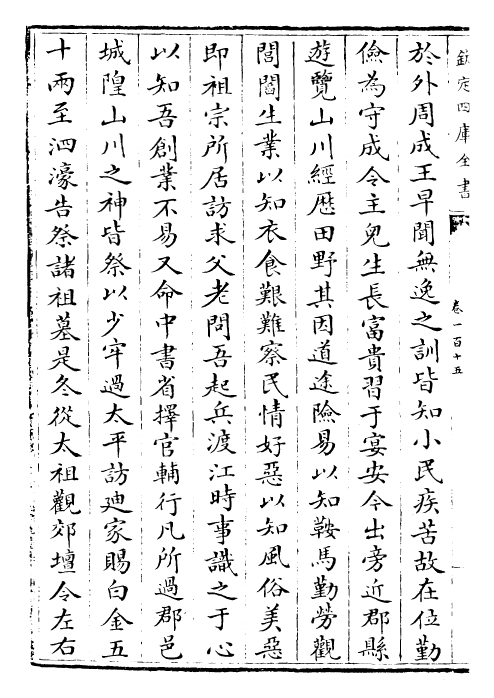 欽定四庫全書
卷一百十五
於外周成王早聞無逸之訓皆知小民疾苦故在位勤
儉為守成令主兒生長富貴習于宴安今出旁近郡縣
遊覽山川經歴田野其因道途險易以知鞍馬勤勞觀
閭閻生業以知衣食艱難察民情好惡以知風俗美惡
即祖宗所居訪求父老問吾起兵渡江時事識之于心
以知吾創業不易又命中書省擇官輔行凡所過郡邑
城隍山川之神皆祭以少牢過太平訪廸家賜白金五
十兩至泗濠告祭諸祖墓是冬從太祖觀郊壇令左右